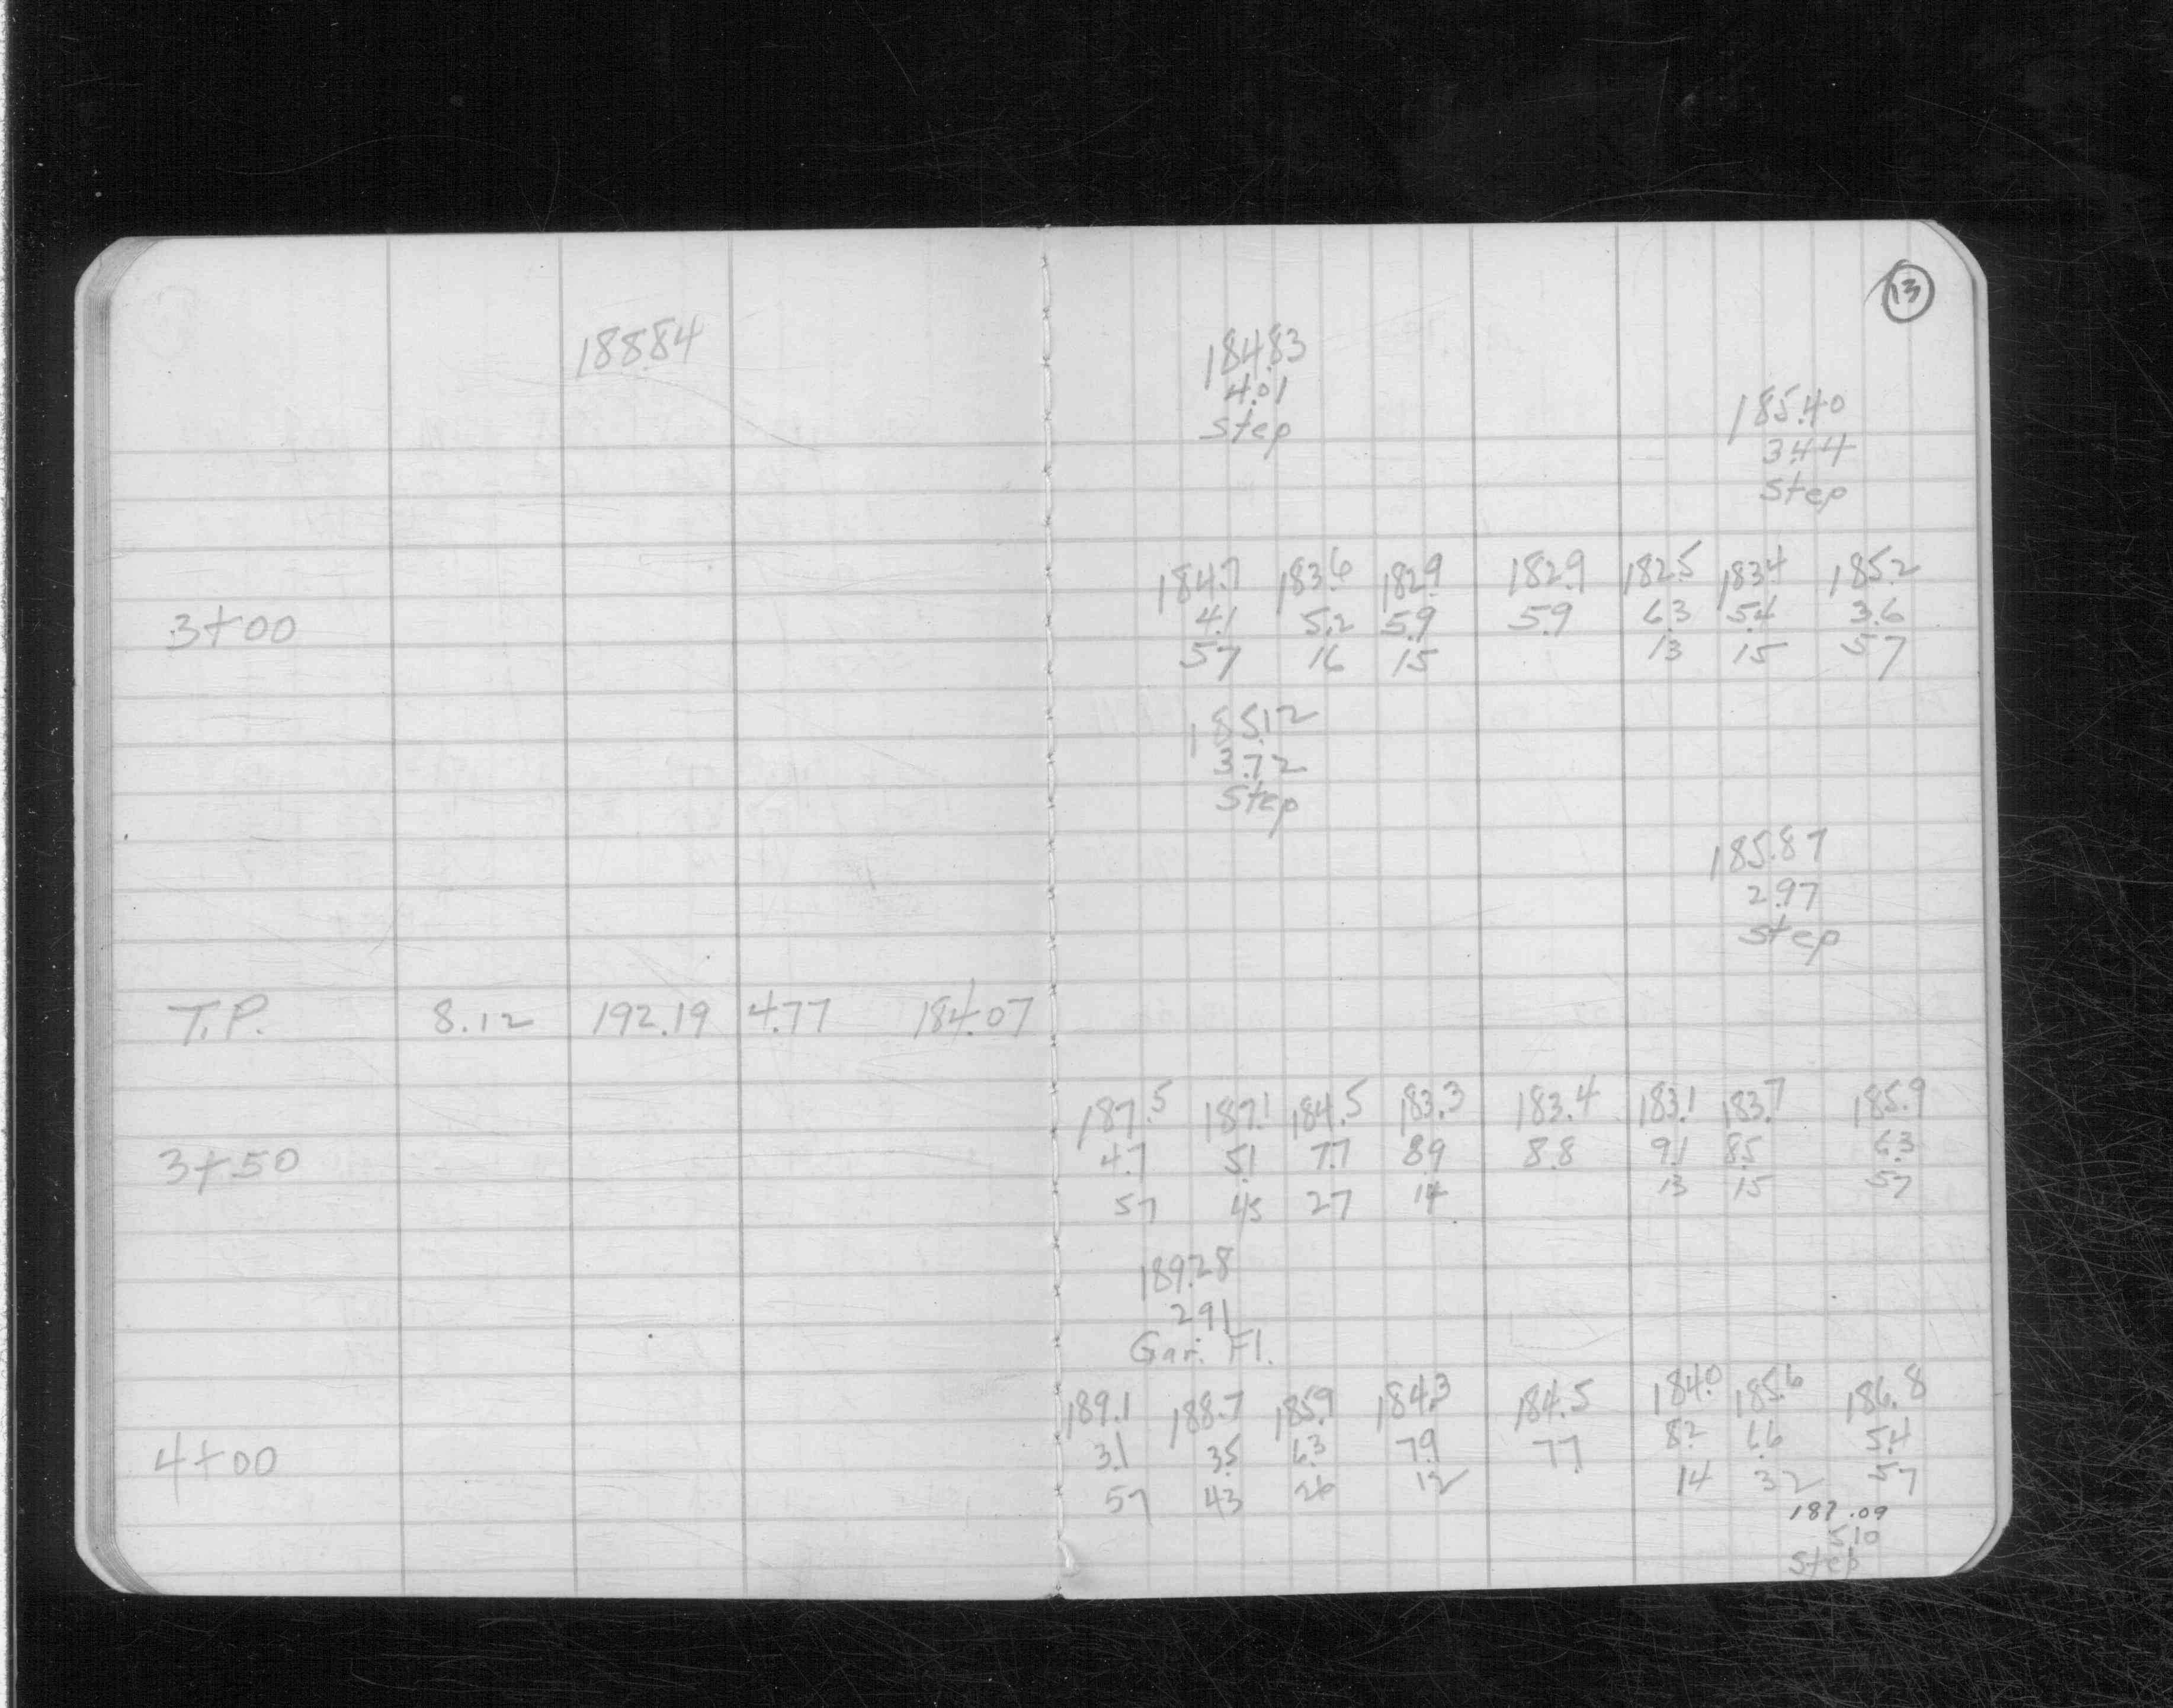 13
188.84
184.83
4.01
Step
185.40
3.44
Step
184.7 183.6 182.9 182.9 182.5 183.4 185.2
3+00 4.1 5.2 5.9 5.9 6.3 5.4 3.6
57 16 15 13 15 57
185.12
3.72
Step
185.87
2.97
Step
T.P. 8.12 192.19 4.77 184.07
187.5 187.1 184.5 183.3 183.4 183.1 183.7 185.9
3+50 4.7 5.1 7.7 8.9 8.8 9.1 8.5 6.3
57 45 27 14 13 15 57
189.28
2.91
Gar. Fl.
189.1 188.7 185.9 184.3 184.5 184.0 185.6 186.8
4+00 3.1 3.5 6.3 7.9 7.7 8.2 6.6 5.4
57 43 26 12 14 32 57
187.09
5.10
Step